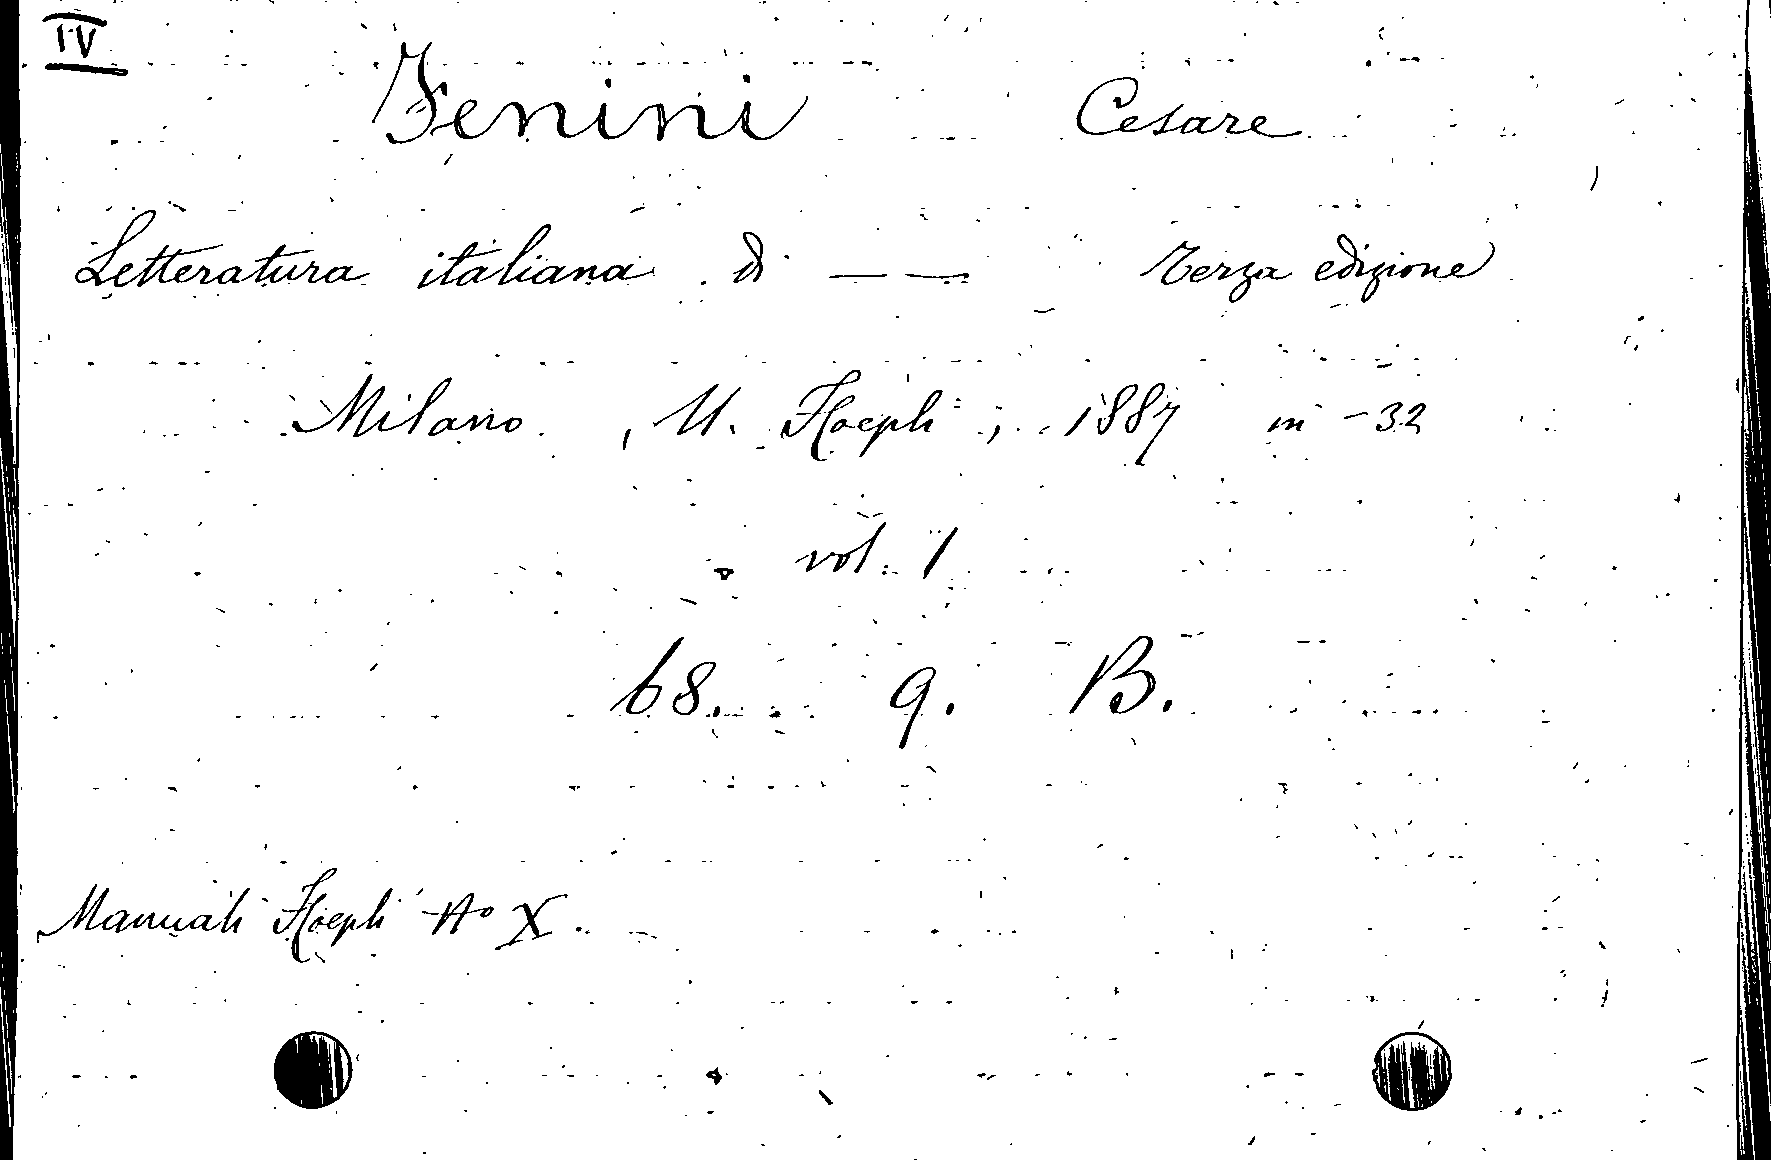 IV
Fenini Cesare
Letteratura italiana di — — Terza edizione
Milano, U. Hoepli, 1887 in-32
vol. 1
68. 9. B.
Manuali Hoepli No X.